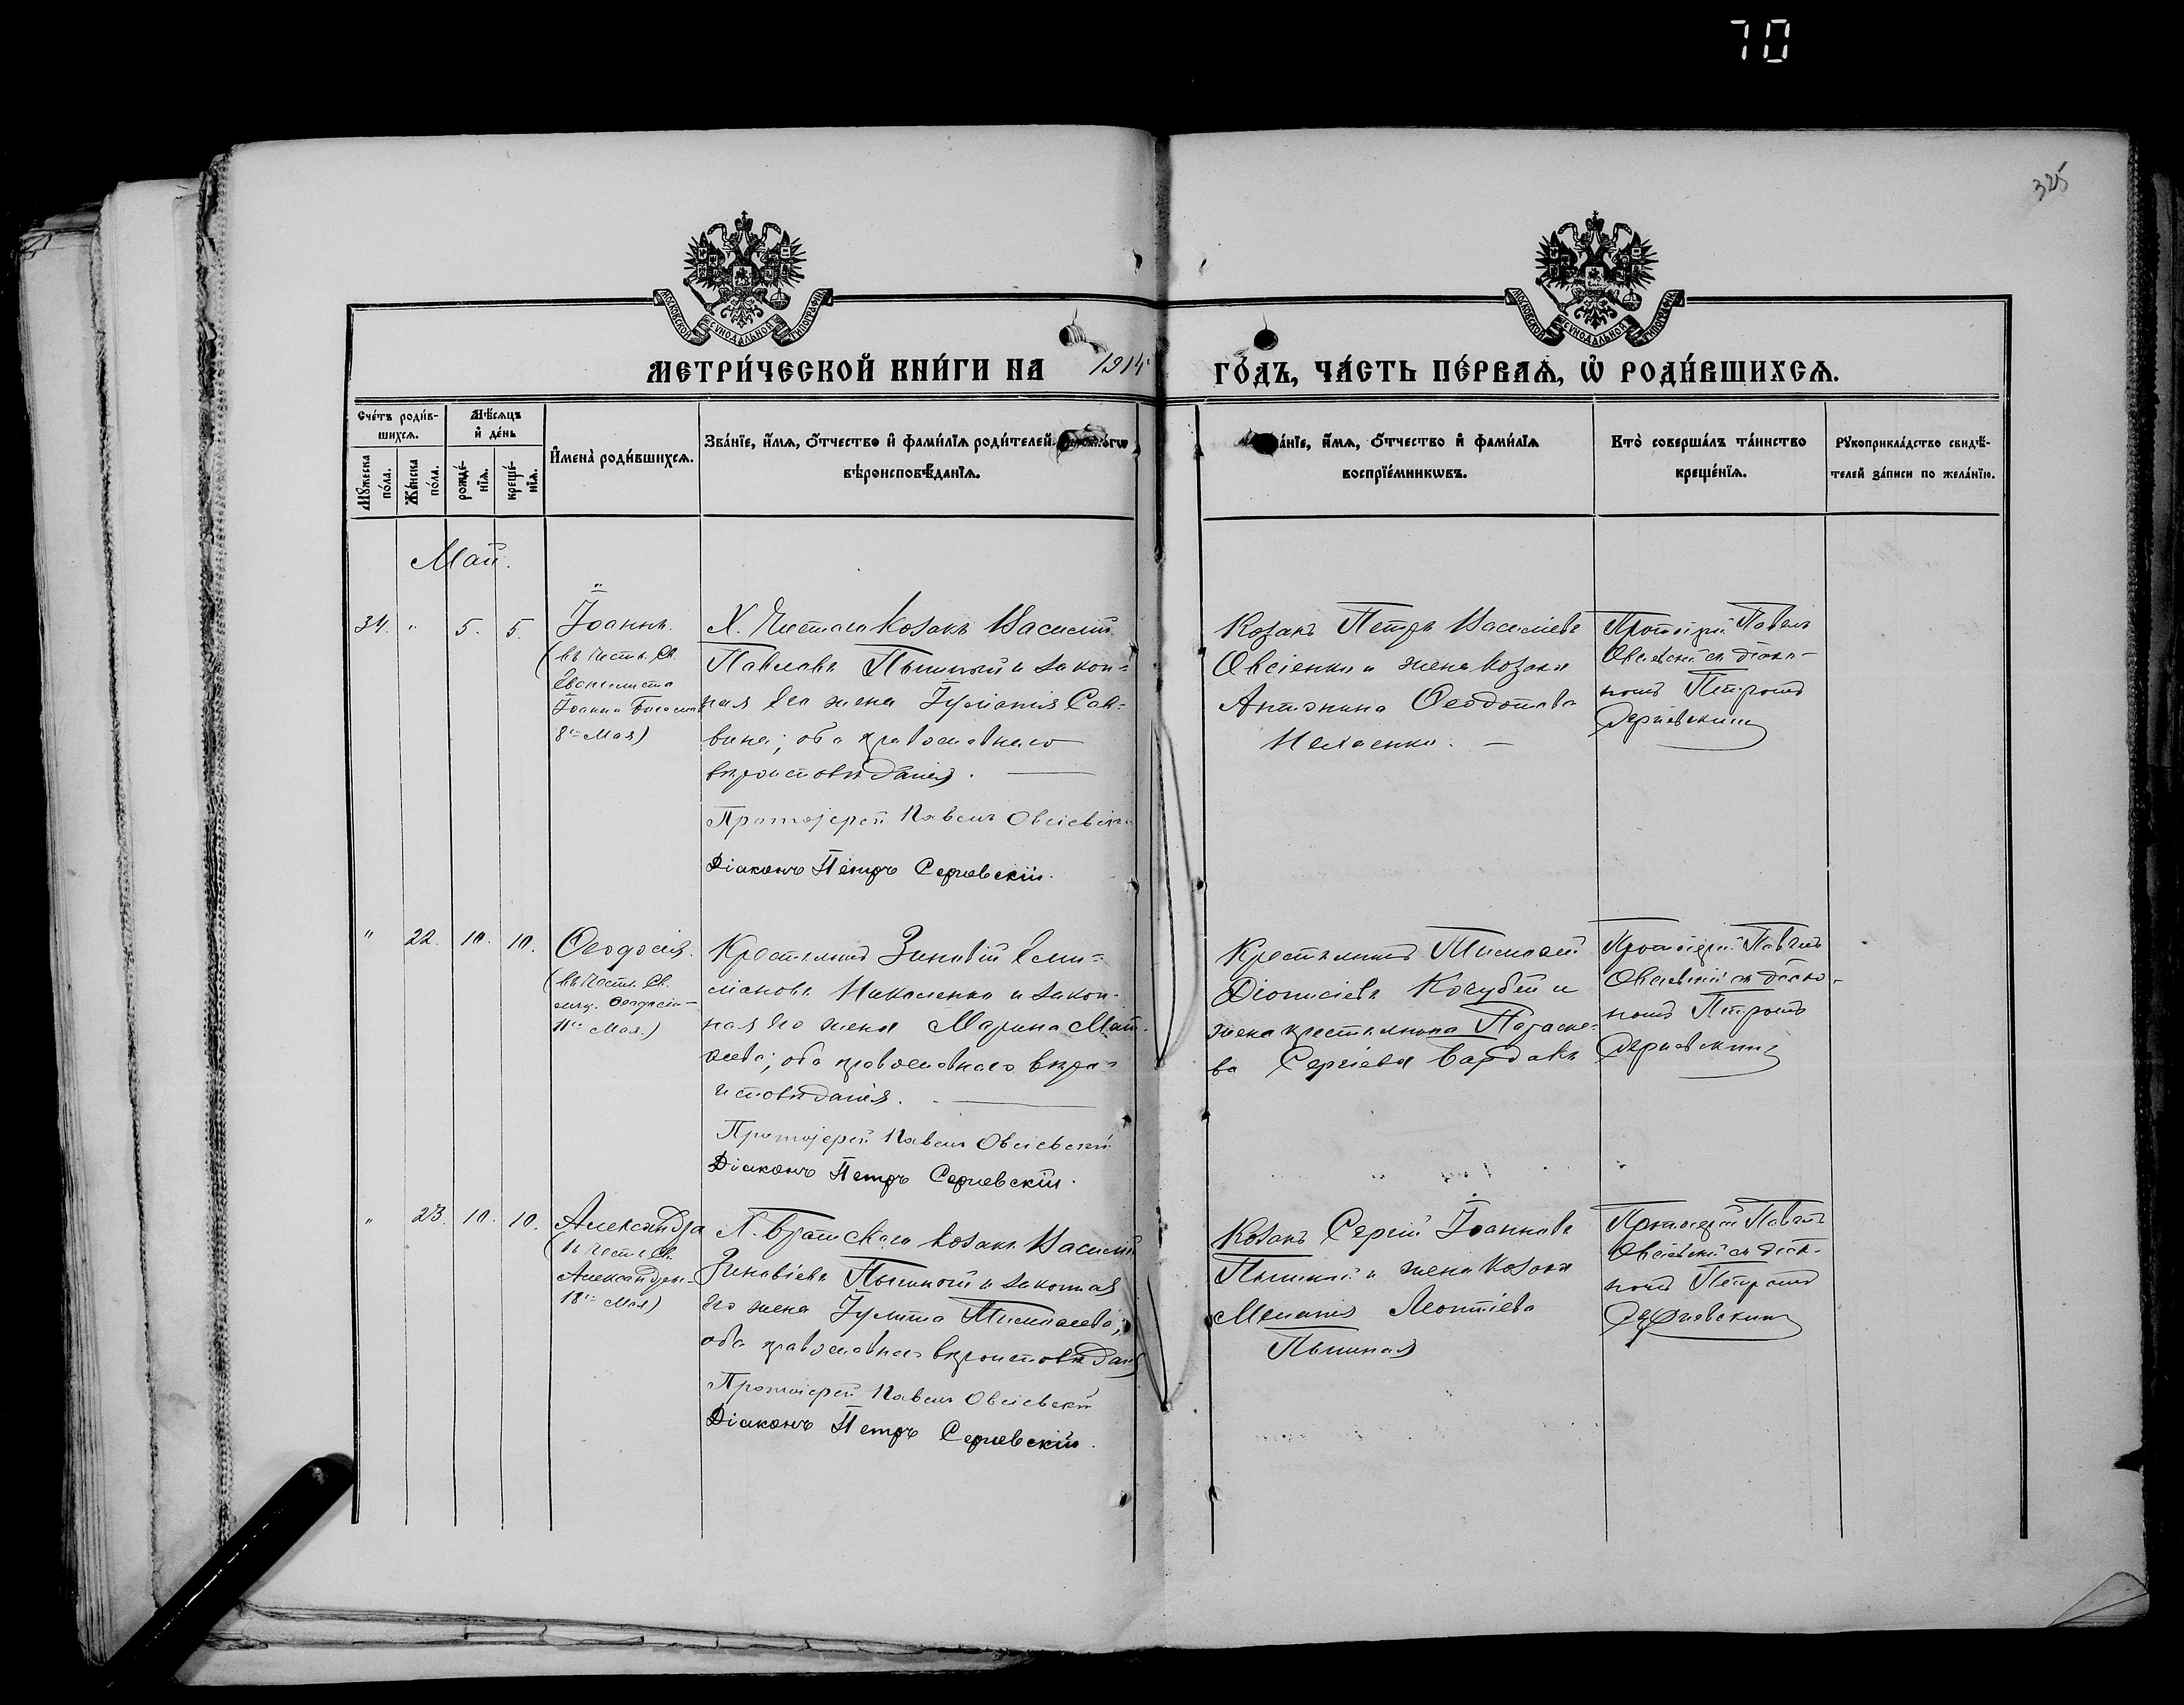 70
325
МОСКОВСКОЙ СѴНОДАЛЬНОЙ ТИПОГРАФІИ
МОСКОВСКОЙ СѴНОДАЛЬНОЙ ТИПОГРАФІИ
МЕТРИ́ЧЕСКОЙ КНИ́ГИ НА 1914 ГО́ДЪ, ЧА́СТЬ ПЕ́РВАѦ, Ѡ҆ РОДИ́ВШИХСѦ.
Сче́тъ роди́в-
шихсѧ.
Мꙋ́жеска
по́ла.
Же́нска
по́ла.
Мѣ́сѧцъ
и҆ де́нь
рожде́-
нїѧ.
креще́-
нїѧ.
И҆мена̀ роди́вшихсѧ.
Зва́нїе, и҆́мѧ, ѻ҆́тчество и҆ фами́лїѧ роди́телей,
вѣроисповѣ́данїѧ.
а́нїе, и҆́мѧ, ѻ҆́тчество и҆ фами́лїѧ
воспрїе́мникѡвъ.
Кто̀ соверша́лъ та́инство
креще́нїѧ.
Рꙋкоприкла́дство свидѣ́-
телей за́писи по жела́нїю.
Май.
34. " 5. 5.
Іоаннъ.
(въ честь Св.
Евангелиста
Іоанна Богослова
8го Мая)
Х. Чистаго Козакъ Василій
Павловъ Пышный и закон-
ная его жена Іуліанія Сав-
вина; оба православнаго
вѣроисповѣданія.
Протоіерей Павелъ Овсіевскій
Діаконъ Петръ Сергіевскій.
Козакъ Петръ Василіевъ
Овсіенко и жена козака
Антонина Ѳеодотова
Протоіерей Павелъ
Овсіевскій съ діако-
номъ Петромъ
Сергіевскимъ
" 22. 10. 10.
Ѳеодосія.
(въ честь Св.
муч. Ѳеодосіи
11го Мая.)
Крестьянинъ Зиновій Еми-
ліановъ Николенко и закон-
ная его жена Марина Мат-
ѳеева; оба православнаго вѣро-
исповѣданія.
Протоіерей Павелъ Овсіевскій
Діаконъ Петръ Сергіевскій.
Крестьянинъ Тимоѳей
Діонисіевъ Кочубей и
жена крестьянина Параске-
ва Сергіева Бардакъ
Протоіерей Павелъ
Овсіевскій съ діако-
номъ Петромъ
Сергіевскимъ
" 23. 10. 10.
Александра
(въ честь Св.
Александры
18го Мая)
Х. Братского Козакъ Василій
Зиновіевъ Пышный и законная
его жена Іулитта Тимоѳеева;
оба православнаго вѣроисповѣданія
Протоіерей Павелъ Овсіевскій
Діаконъ Петръ Сергіевскій.
Козакъ Сергій Іоанновъ
Пышный и жена козака
Меланія Леонтіева
Пышная
Протоіерей Павелъ
Овсіевскій съ діак-
номъ Петромъ
Сергіевскимъ